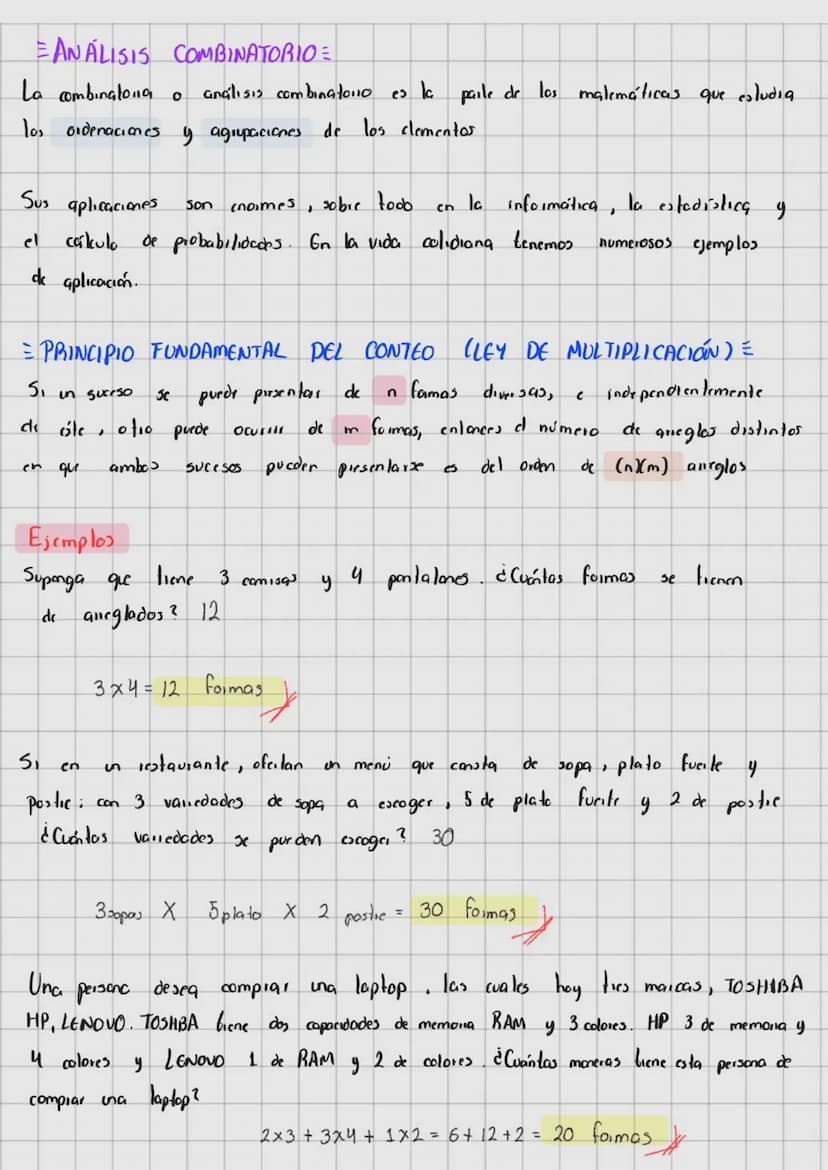 ≡ ANÁLISIS COMBINATORIO ≡
La combinatoria o análisis combinatorio es la parte de las matemáticas que estudia
las ordenaciones y agrupaciones de los elementos
Sus aplicaciones son enormes, sobre todo en la informática, la estadística y
el cálculo de probabilidades. En la vida cotidiana tenemos numerosos ejemplos
de aplicación.
≡ PRINCIPIO FUNDAMENTAL DEL CONTEO (LEY DE MULTIPLICACIÓN) ≡
Si un suceso se puede presentar de n formas diversas, e independientemente
de éste, otro puede ocurrir de m formas, entonces el número de arreglos distintos
en que ambos sucesos pueden presentarse es del orden de (n)(m) arreglos
Ejemplos
Suponga que tiene 3 camisas y 4 pantalones. ¿Cuántas formas se tienen
de arreglados? 12
3 x 4 = 12 formas
Si en un restaurante, ofertan un menú que consta de sopa, plato fuerte y
postre; con 3 variedades de sopa a escoger, 5 de plato fuerte y 2 de postre
¿Cuántas variedades se pueden escoger? 30
3 sopas X 5 plato X 2 postre = 30 formas
Una persona desea comprar una laptop, las cuales hay tres marcas, TOSHIBA
HP, LENOVO. TOSHIBA tiene dos capacidades de memoria RAM y 3 colores. HP 3 de memoria y
4 colores y LENOVO 1 de RAM y 2 de colores. ¿Cuántas maneras tiene esta persona de
comprar una laptop?
2x3 + 3x4 + 1x2 = 6 + 12 + 2 = 20 formas